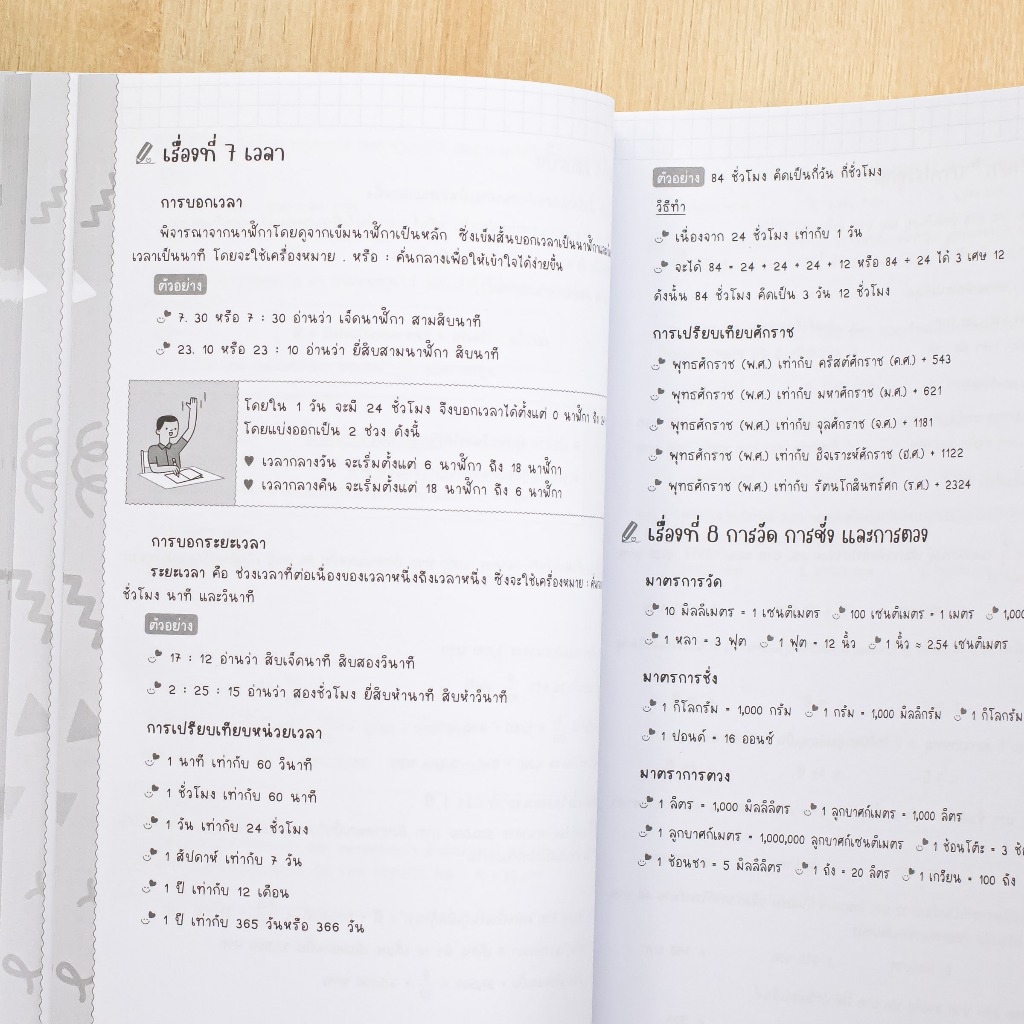 เรื่องที่ 7 เวลา
การบอกเวลา
พิจารณาจากนาฬิกาโดยดูจากเข็มนาฬิกาเป็นหลัก ซึ่งเข็มสั้นบอกเวลาเป็นนาฬิกาและ
เวลาเป็นนาที โดยจะใช้เครื่องหมาย . หรือ : คั่นกลางเพื่อให้เข้าใจได้ง่ายขึ้น
ตัวอย่าง
7. 30 หรือ 7 : 30 อ่านว่า เจ็ดนาฬิกา สามสิบนาที
23. 10 หรือ 23 : 10 อ่านว่า ยี่สิบสามนาฬิกา สิบนาที
โดยใน 1 วัน จะมี 24 ชั่วโมง จึงบอกเวลาได้ตั้งแต่ 0 นาฬิกา ถึง
โดยแบ่งออกเป็น 2 ช่วง ดังนี้
เวลากลางวัน จะเริ่มตั้งแต่ 6 นาฬิกา ถึง 18 นาฬิกา
เวลากลางคืน จะเริ่มตั้งแต่ 18 นาฬิกา ถึง 6 นาฬิกา
การบอกระยะเวลา
ระยะเวลา คือ ช่วงเวลาที่ต่อเนื่องของเวลาหนึ่งถึงเวลาหนึ่ง ซึ่งจะใช้เครื่องหมาย :
ชั่วโมง นาที และวินาที
ตัวอย่าง
17 : 12 อ่านว่า สิบเจ็ดนาที สิบสองวินาที
2 : 25 : 15 อ่านว่า สองชั่วโมง ยี่สิบห้านาที สิบห้าวินาที
การเปรียบเทียบหน่วยเวลา
1 นาที เท่ากับ 60 วินาที
1 ชั่วโมง เท่ากับ 60 นาที
1 วัน เท่ากับ 24 ชั่วโมง
1 สัปดาห์ เท่ากับ 7 วัน
1 ปี เท่ากับ 12 เดือน
1 ปี เท่ากับ 365 วันหรือ 366 วัน
ตัวอย่าง 84 ชั่วโมง คิดเป็นกี่วัน กี่ชั่วโมง
วิธีทำ
เนื่องจาก 24 ชั่วโมง เท่ากับ 1 วัน
จะได้ 84 = 24 + 24 + 24 + 12 หรือ 84 ÷ 24 ได้ 3 เศษ 12
ดังนั้น 84 ชั่วโมง คิดเป็น 3 วัน 12 ชั่วโมง
การเปรียบเทียบศักราช
พุทธศักราช (พ.ศ.) เท่ากับ คริสต์ศักราช (ค.ศ.) + 543
พุทธศักราช (พ.ศ.) เท่ากับ มหาศักราช (ม.ศ.) + 621
พุทธศักราช (พ.ศ.) เท่ากับ จุลศักราช (จ.ศ.) + 1181
พุทธศักราช (พ.ศ.) เท่ากับ ฮิจเราะห์ศักราช (ฮ.ศ.) + 1122
พุทธศักราช (พ.ศ.) เท่ากับ รัตนโกสินทร์ศก (ร.ศ.) + 2324
เรื่องที่ 8 การวัด การชั่ง และการตวง
มาตรการวัด
10 มิลลิเมตร = 1 เซนติเมตร 100 เซนติเมตร = 1 เมตร 1,000
1 หลา = 3 ฟุต 1 ฟุต = 12 นิ้ว 1 นิ้ว ≈ 2.54 เซนติเมตร
มาตรการชั่ง
1 กิโลกรัม = 1,000 กรัม 1 กรัม = 1,000 มิลลิกรัม 1 กิโลกรัม
1 ปอนด์ = 16 ออนซ์
มาตราการตวง
1 ลิตร = 1,000 มิลลิลิตร 1 ลูกบาศก์เมตร = 1,000 ลิตร
1 ลูกบาศก์เมตร = 1,000,000 ลูกบาศก์เซนติเมตร 1 ช้อนโต๊ะ = 3
1 ช้อนชา = 5 มิลลิลิตร 1 ถัง = 20 ลิตร 1 เกวียน = 100 ถัง